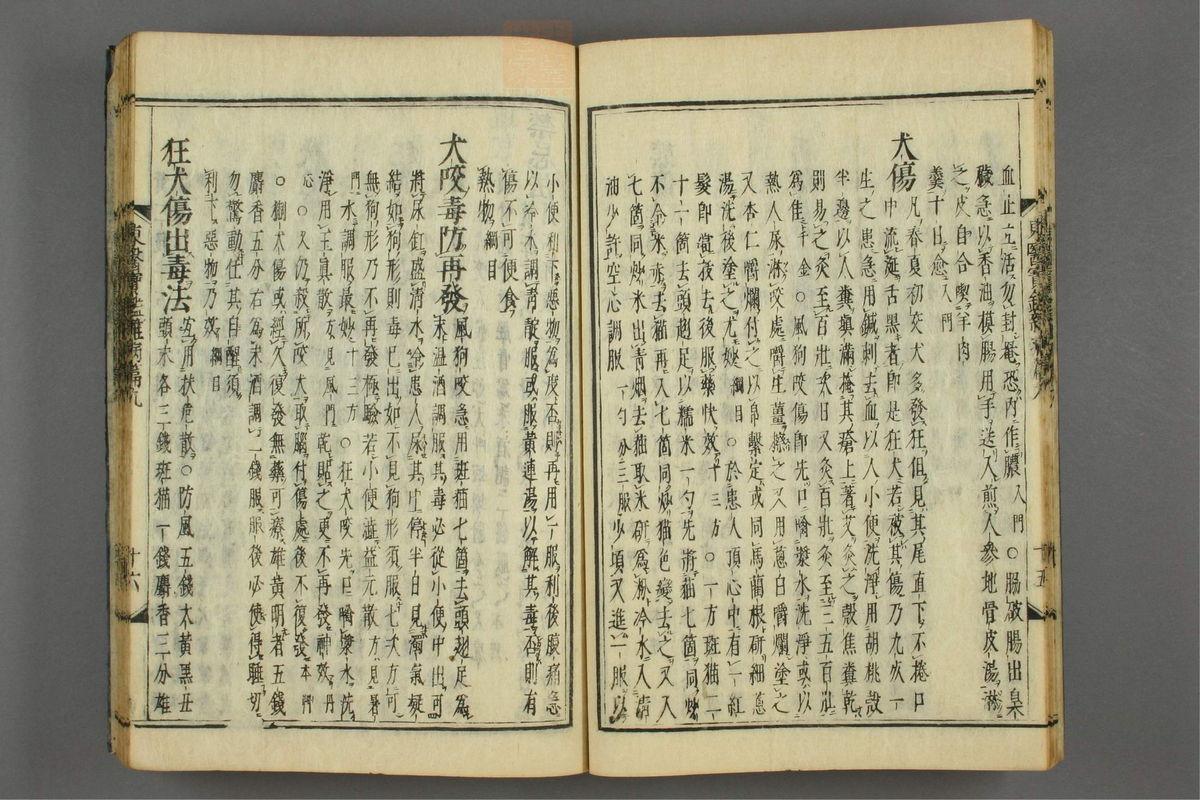 血止立活勿封罨恐内作膿入門○腸破腸出臭
穢急以香油模腸用手送入煎人參地骨皮湯淋
之皮自合喫羊肉
羹十日愈入門
犬傷
凡春夏初交犬多發狂但見其尾直下不捲口
中流涎舌黑者即是狂犬若被其傷乃九死一
生之患急用鍼刺去血以人小便洗淨用胡桃殼
半邊以人糞塡滿掩其瘡上著艾灸之殼焦糞乾
則易之灸至百壯次日又灸百壯灸至三五百壯
爲佳千金○風狗咬傷即先口噙漿水洗淨或以
熱人尿淋咬處嚼生薑擦之又用葱白嚼爛塗之
又杏仁嚼爛付之以帛繫定或同馬藺根研細葱
湯洗後塗之尤妙綱目○於患人頂心中有一紅
髮即當拔去後服藥快效十三方○一方斑猫二
十一箇去頭翅足以糯米一勺先將猫七箇同炒
不令米赤去猫再入七箇同炒猫色變去之又入
七箇同炒米出靑烟去猫取米硏爲粉冷水入淸
油少許空心調服一勺分三服少頃又進一服以
東醫寶鑑雜病篇九
十五
小便利下惡物爲度否則再用一服利後腹痛急
以冷水調靑散服或服黃連湯以解其毒否則有
傷不可便食
熱物綱目
犬咬毒防再發
風狗咬急用斑猫七箇去頭翅足爲
末溫酒調服其毒必從小便中出可
將尿缸盛淸水令患人尿其中停半日見濁氣凝
結如狗形則毒已出如不見狗形須服七次方可
無狗形乃不再發極驗若小便澁益元散方見暑
門水調服最妙十三方○狂犬咬先口噙漿水洗
淨用玉眞散方見風門乾貼之更不再發神效丹
心○又仍殺所咬犬取腦付傷處後不復發本門
○猘犬傷或經久復發無藥可療雄黃明者五錢
麝香五分右爲末酒調二錢服服後必使得睡切
勿驚動任其自醒須
利下惡物乃效綱目
狂犬傷出毒法
宜用扶危散○防風五錢大黃黑丑
頭末各三錢斑猫一錢麝香三分雄
東醫寶鑑雜病篇九
十六